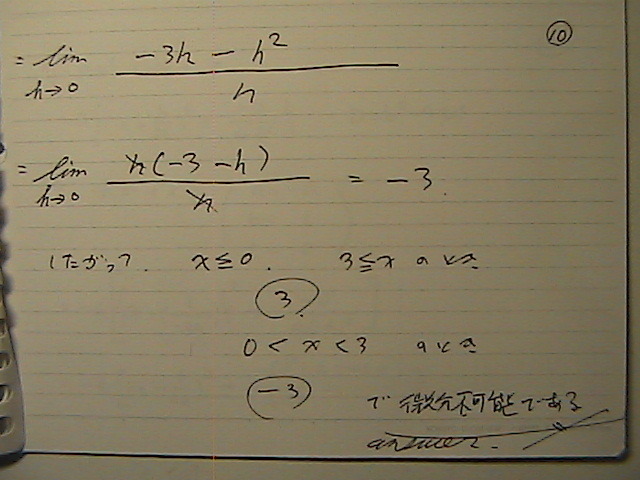 ⑩
= lim h→0 (-3h - h²) / h
= lim h→0 h(-3 - h) / h = -3.
したがって. x≦0. 3≦x のとき
3.
0 < x < 3 のとき
-3 で 微分不可能である
answer.